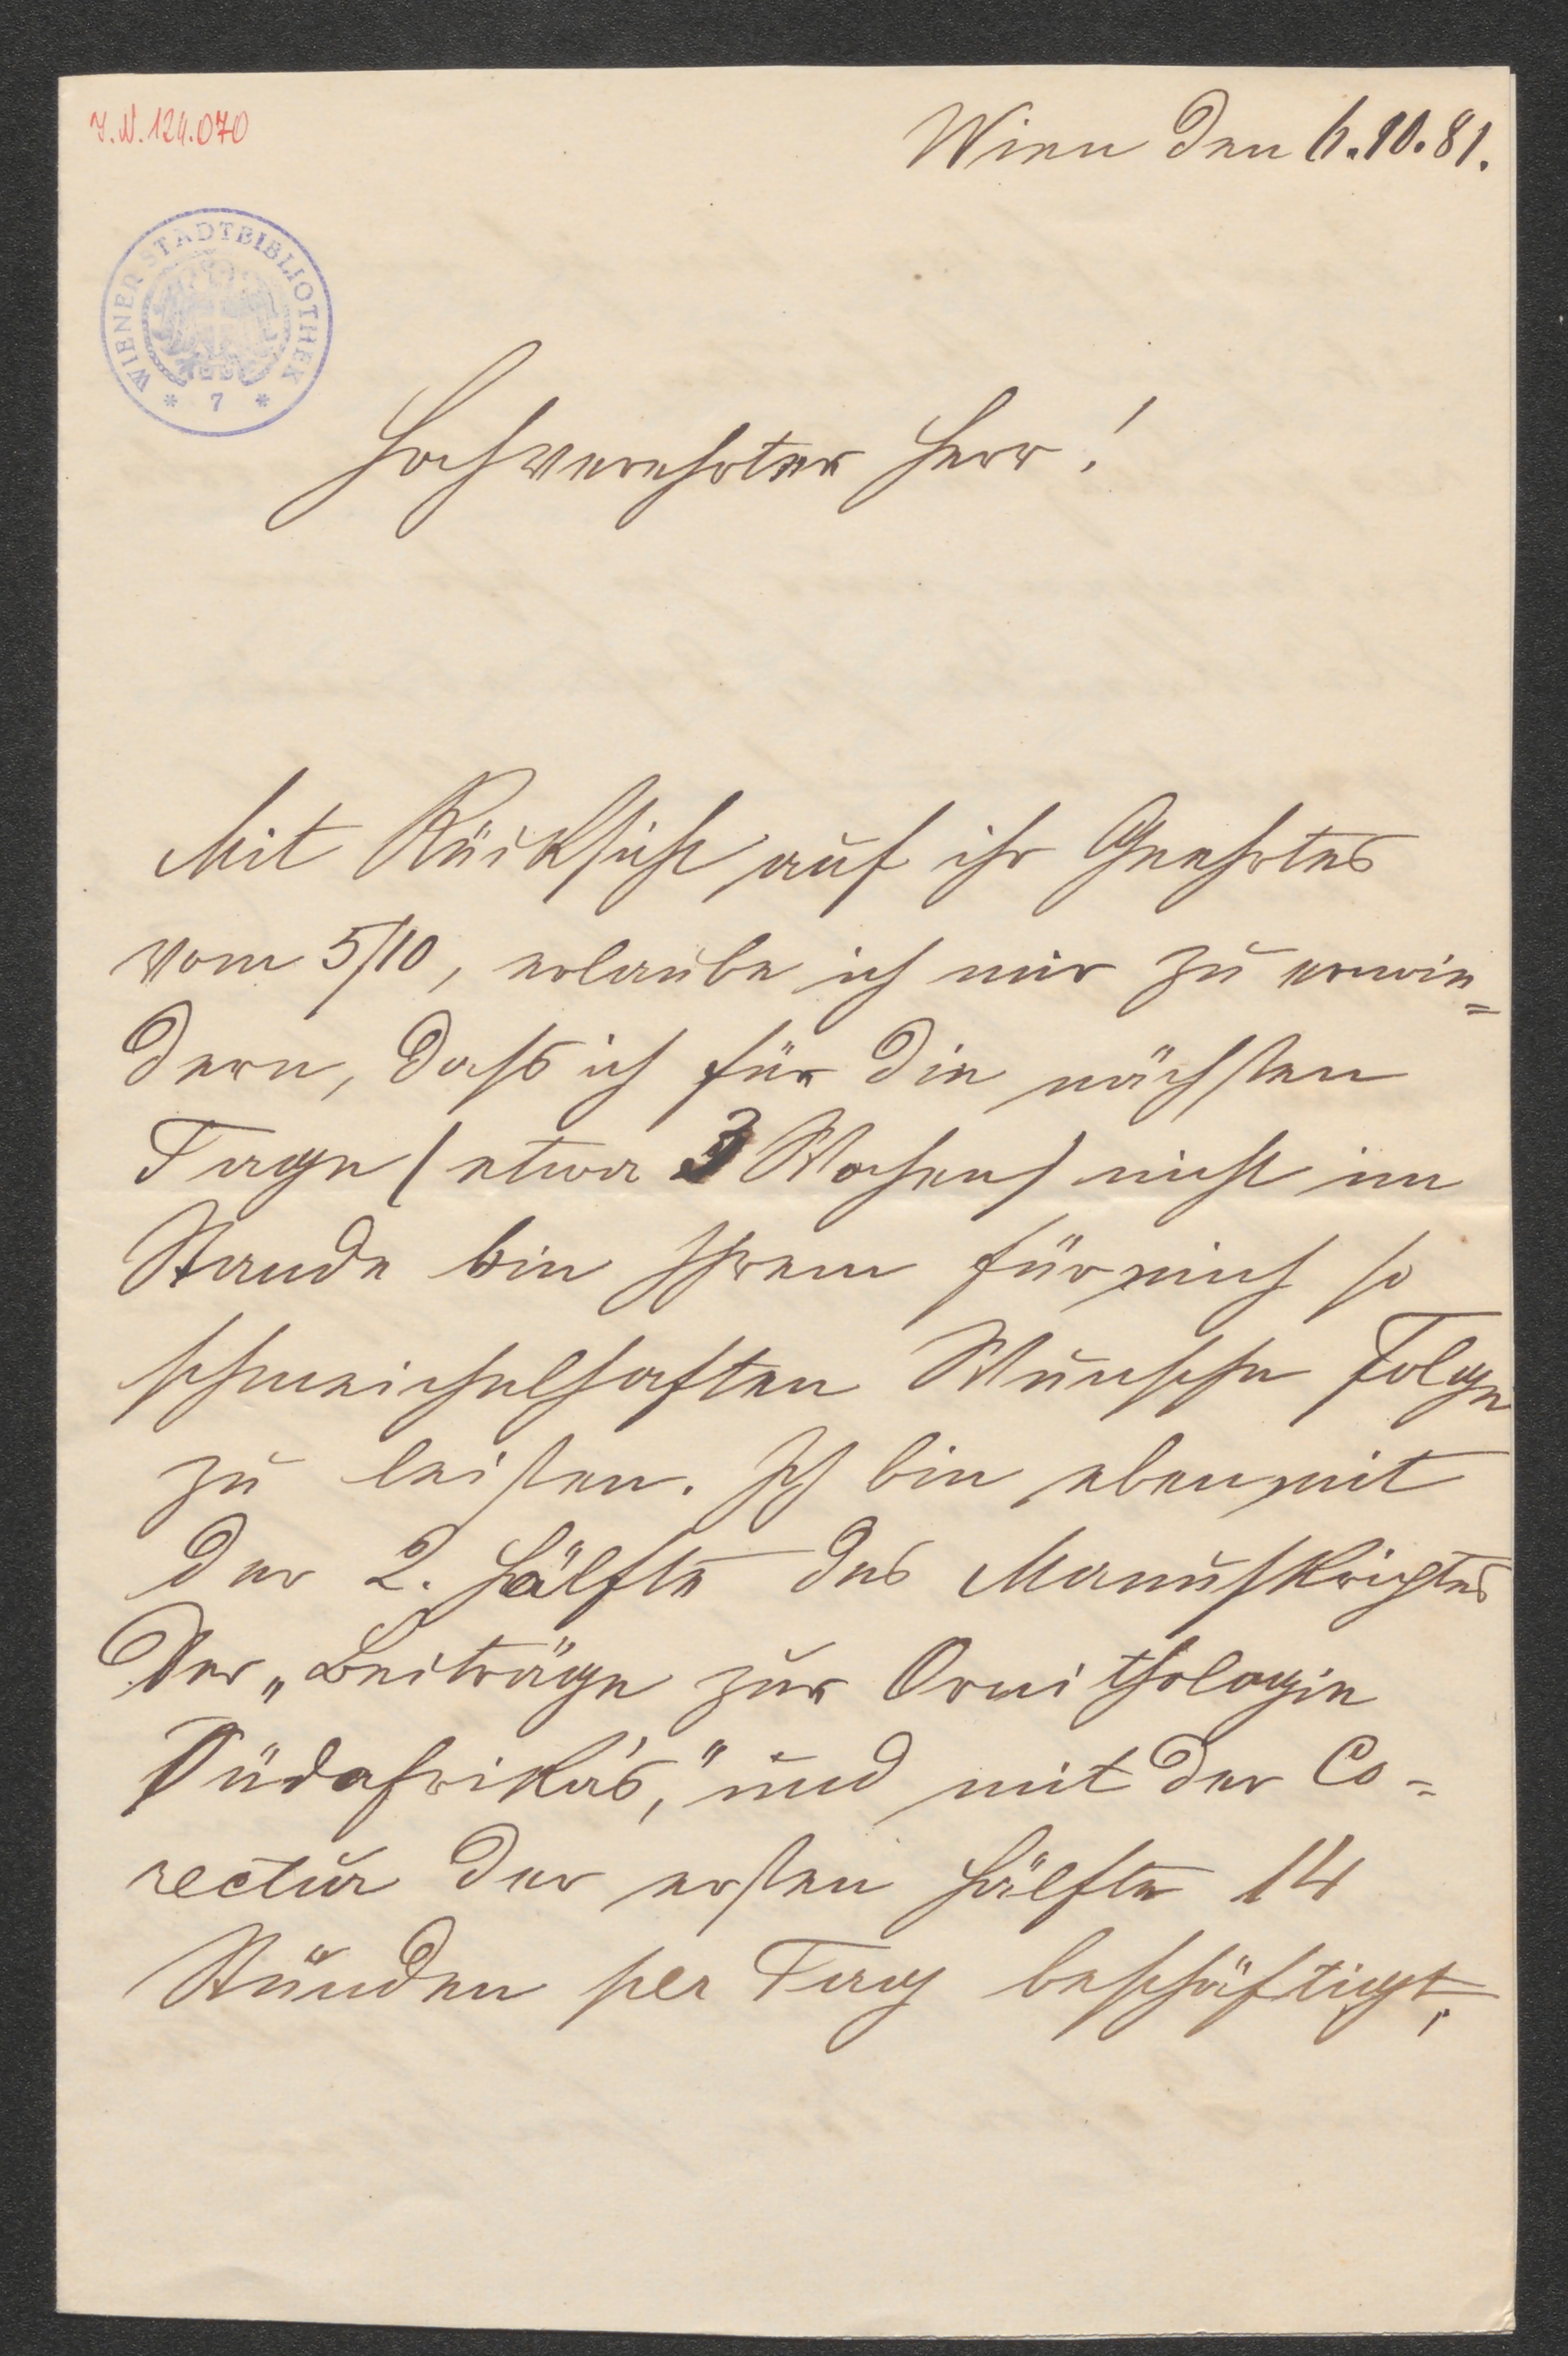 J.N. 124.070
Wien den 6.10.81.
WIENER STADTBIBLIOTHEK
* 7 *
Hochverehrter Herr!
Mit Rücksicht auf ihr Geehrtes
vom 5/10, erlaube ich mir zu erwie=
dern, dass ich für die nächsten
Tage (etwa 3 Wochen) nicht im
Stande bin Ihrem für mich so
schmeichelhaften Wunsche Folge
zu leisten. Ich bin eben mit
der 2. Hälfte des Manuskriptes
Der „Beiträge zur Ornithologie
Südafrika's," und mit der Co=
rectur der ersten Hälfte 14
Stunden per Tag beschäftigt,